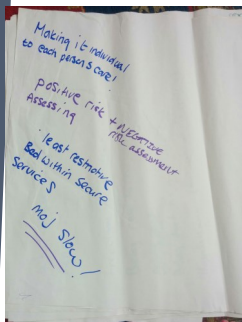 Making it individual
to each persons care!
positive risk + NEGATIVE
Assessing risk assessment
least restrictive
Bed within secure
services
moj slow!